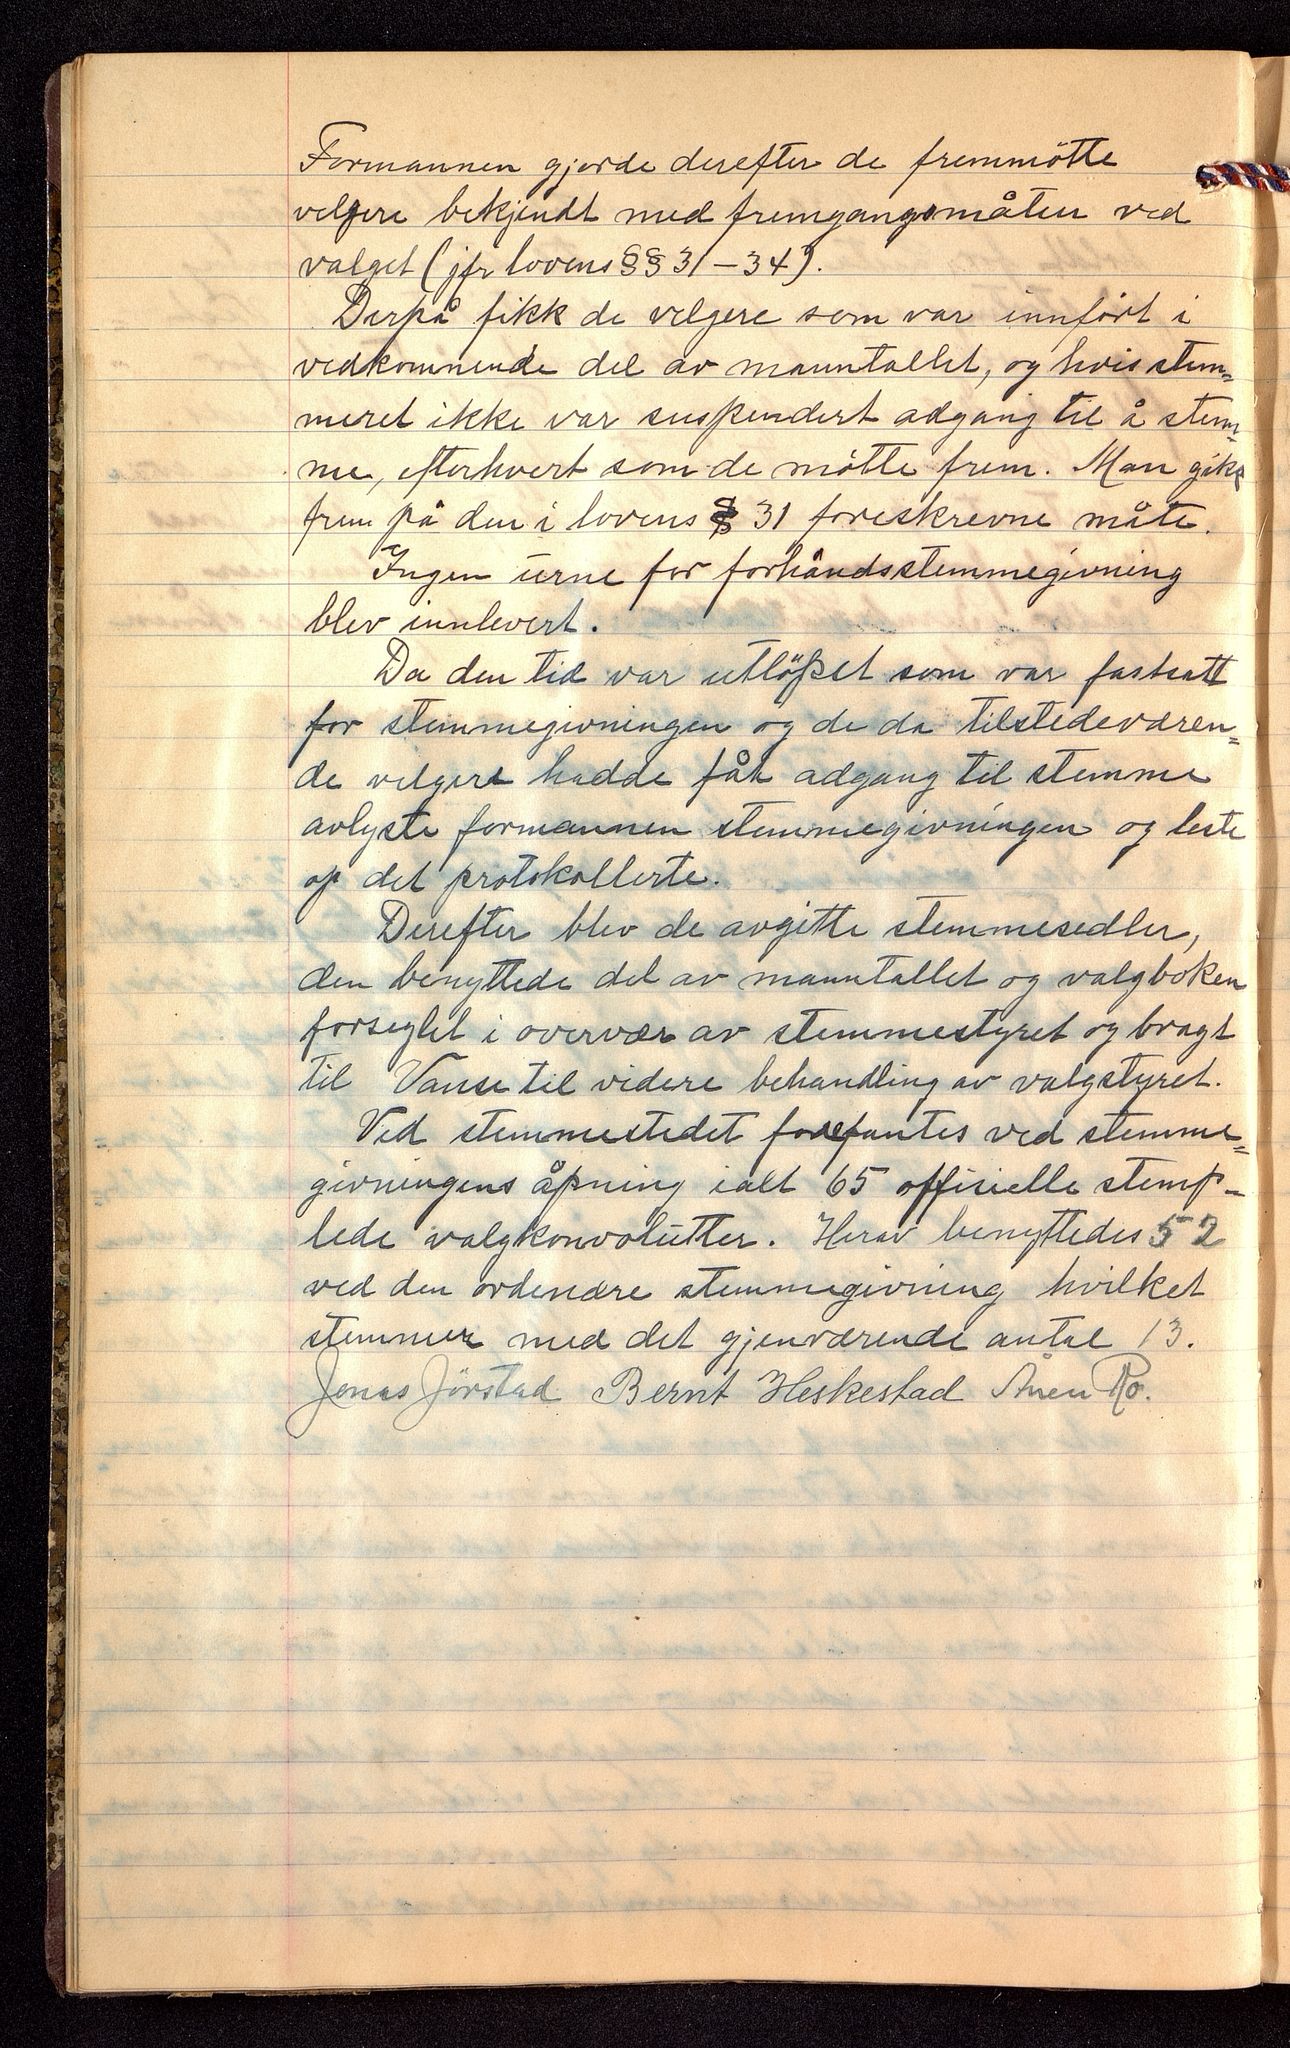 Formannen gjorde derefter de fremmötte
velgere bekjendt med fremgangsmåten ved
valget (jfr lovens §§ 31-34).
Derpå fikk de velgere som var innfört i
vedkommende del av manntallet, og hvis stem=
meret ikke var suspendert adgang til å stem-
me, efterhvert som de mötte frem. Man gikk
frem på den i lovens § 31 foreskrevne måte.
Ingen urne for forhåndsstemmegivning
blev innlevert.
Da den tid var utlöpet som var fastsatt
for stemmegivningen og de da tilstedeværen=
de velgere hadde fåt adgang til stemme
avlyste formannen stemmegivningen og leste
op det protokollerte.
Derefter blev de avgitte stemmesedler,
den benyttede del av manntallet og valgboken
forseglet i overvær av stemmestyret og bragt
til Vanse til videre behandling av valgstyret.
Ved stemmestedet forefantes ved stemme=
givningens åpning ialt 65 offisielle stemp-
lede valgkonvolutter. Herav benyttedes 52
ved den ordenære stemmegivning hvilket
stemmer med det gjenværende antal 13.
Jonas Jörstad Bernt Heskestad Ro.